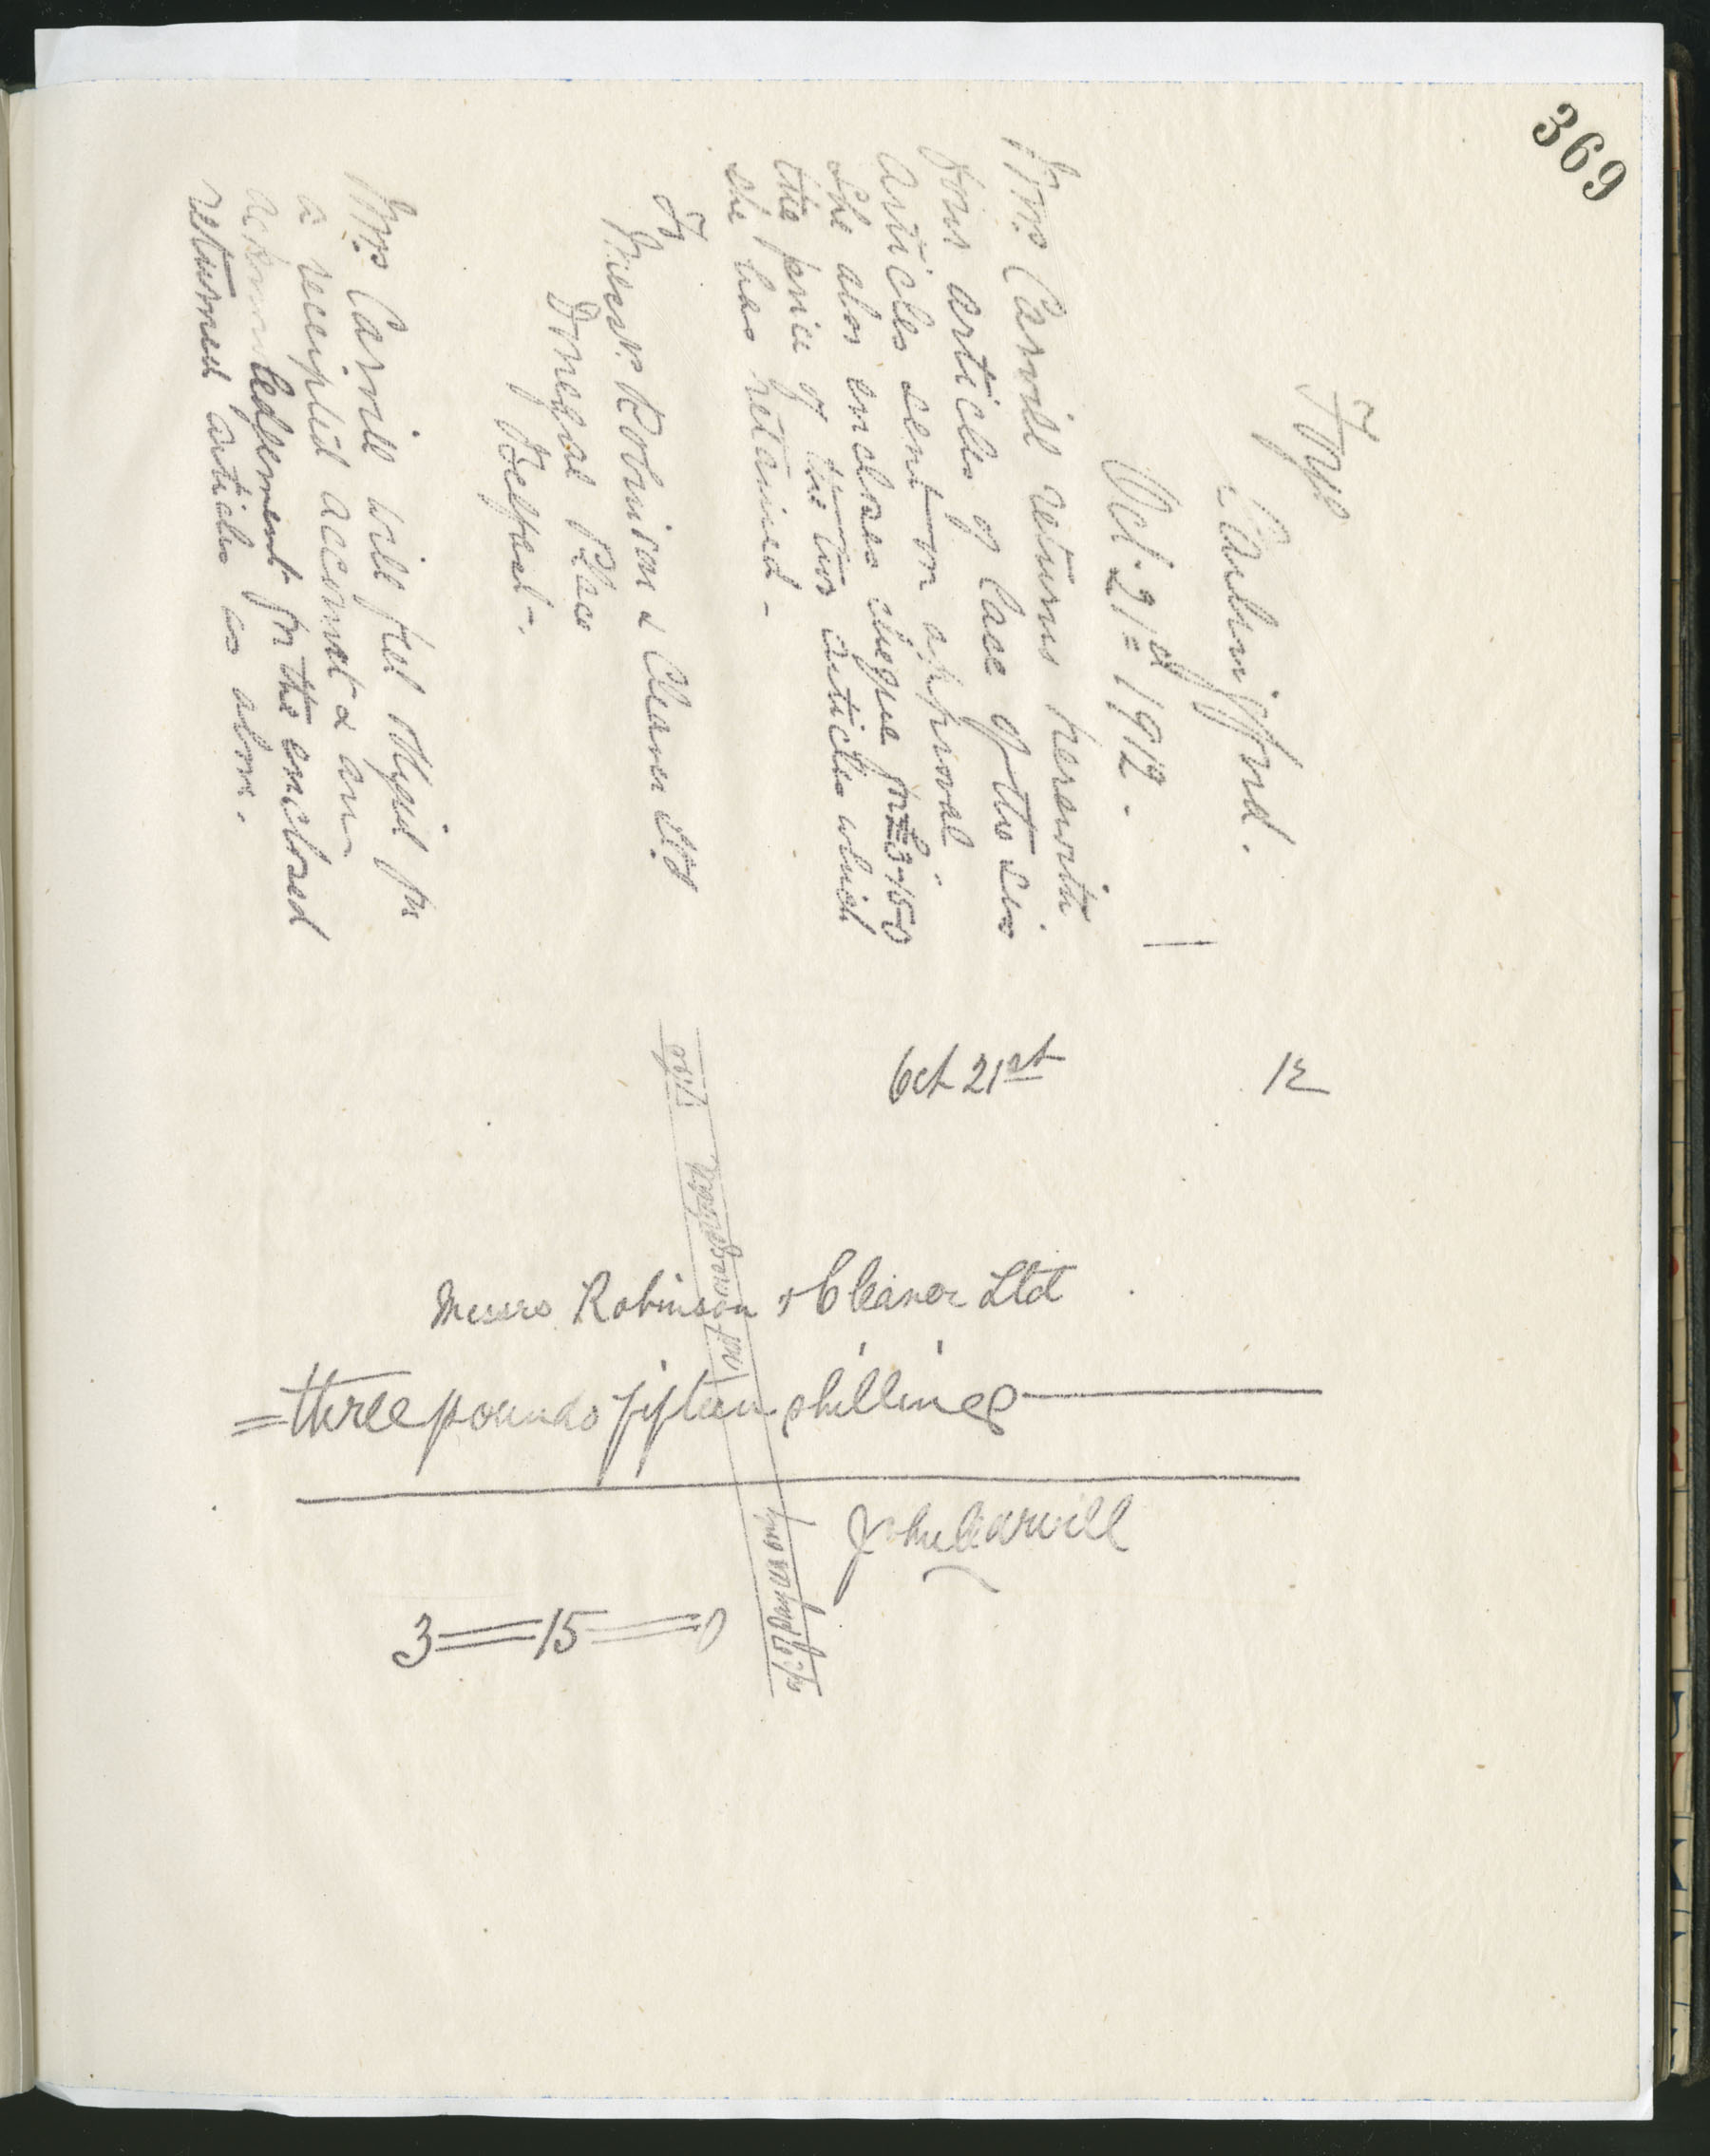 369
Carlingford.
Oct. 21st 1912.
Mrs Carvill returns herewith
four articles of lace of the six
articles sent on approval.
She also encloses cheque for £3-15-0
the price of the two articles which
she has retained -
To
Messrs. Robinson & Cleaver Ltd
Donegal Place
Belfast -.
Mrs Carvill will feel obliged for
a receipted account & an
acknowledgement for the enclosed
returned articles as above.
Oct 21st 12
Messrs Robinson & Cleaver Ltd
three pounds fifteen shillings
John Carvill
3 = 15 = 0
Not negotiable